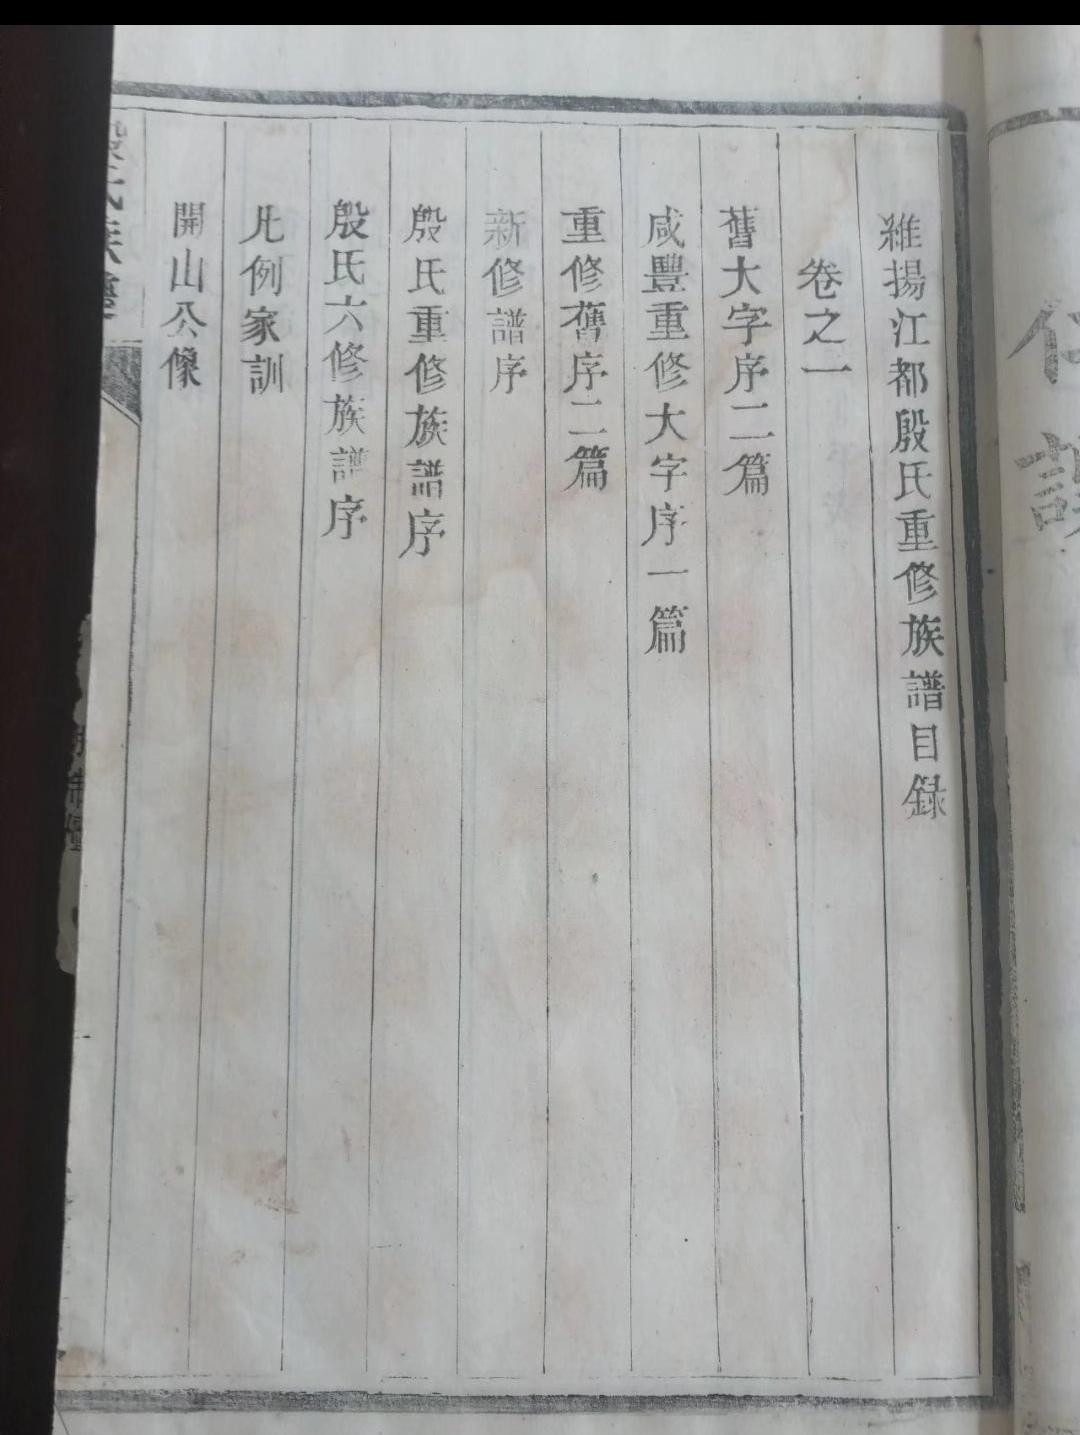 維揚江都殷氏重修族譜目録
卷之一
舊大字序二篇
咸豐重修大字序一篇
重修舊序二篇
新修譜序
殷氏重修族譜序
殷氏六修族譜序
凡例家訓
開山公像
氏族譜